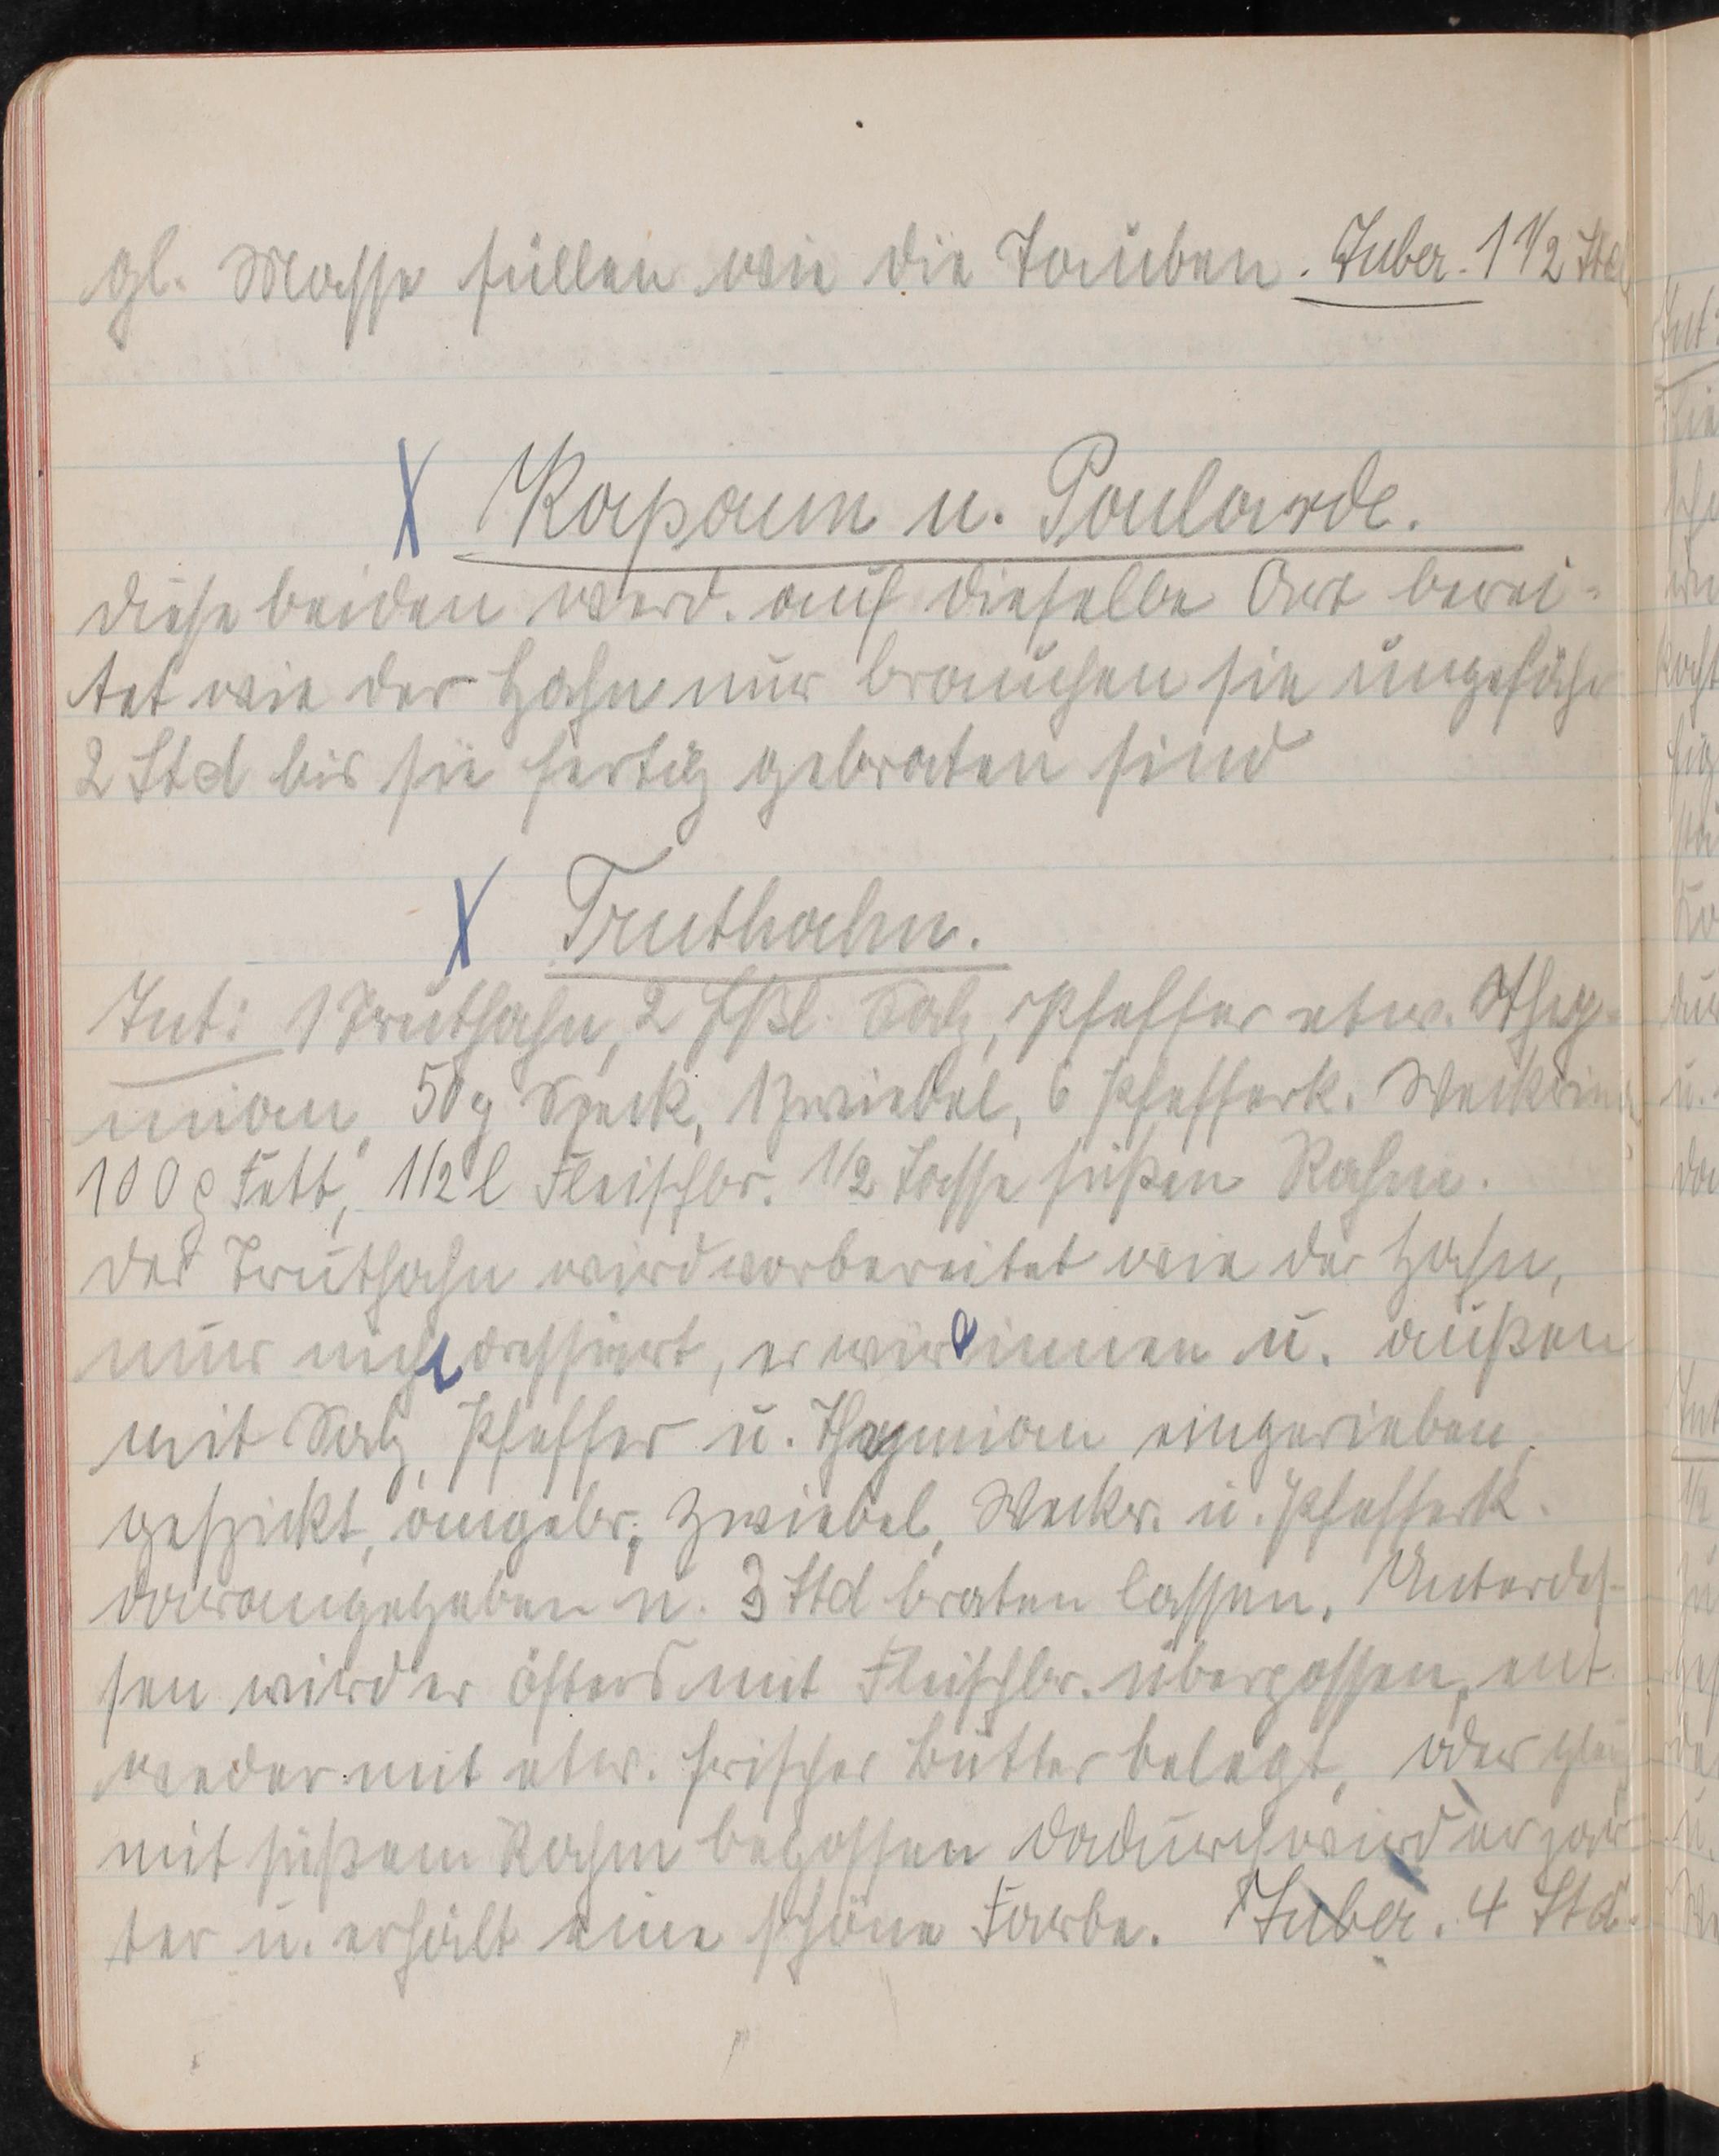 gl. Masse füllen wie die Tauben. Zuber. 1 1/2 Std
X Kapaun u. Poularde.
diese beiden werd. auf dieselbe Art berei-
tet wie der Hahn nur brauchen sie ungefähr
2 Std bis sie fertig gebraten sind
X Truthahn.
Zut: 1 Truthahn, 2 Eßl. Salz, Pfeffer etw. Thy-
mian, 50 g Speck, 1 Zwiebel, 6 Pfefferk. Weckrind
100 g Fett, 1/2 l Fleischbr. 1/2 Tasse süßen Rahm.
der Truthahn wird vorbereitet wie der Hahn,
nur nicht dressiert, er wird innen u. außen
mit Salz, Pfeffer u. Thymian eingerieben,
gespickt, angebr., Zwiebel, Weckr. u. Pfefferk.
darangegeben u. 3 Std braten lassen. Unterdes-
sen wird er öfters mit Fleischbr. übergossen, ent-
weder mit etw. frischer Butter belegt, oder
mit süßem Rahm begossen dadurch wird er zar-
ter u. erhält eine schöne Farbe. Zuber. 4 Std.